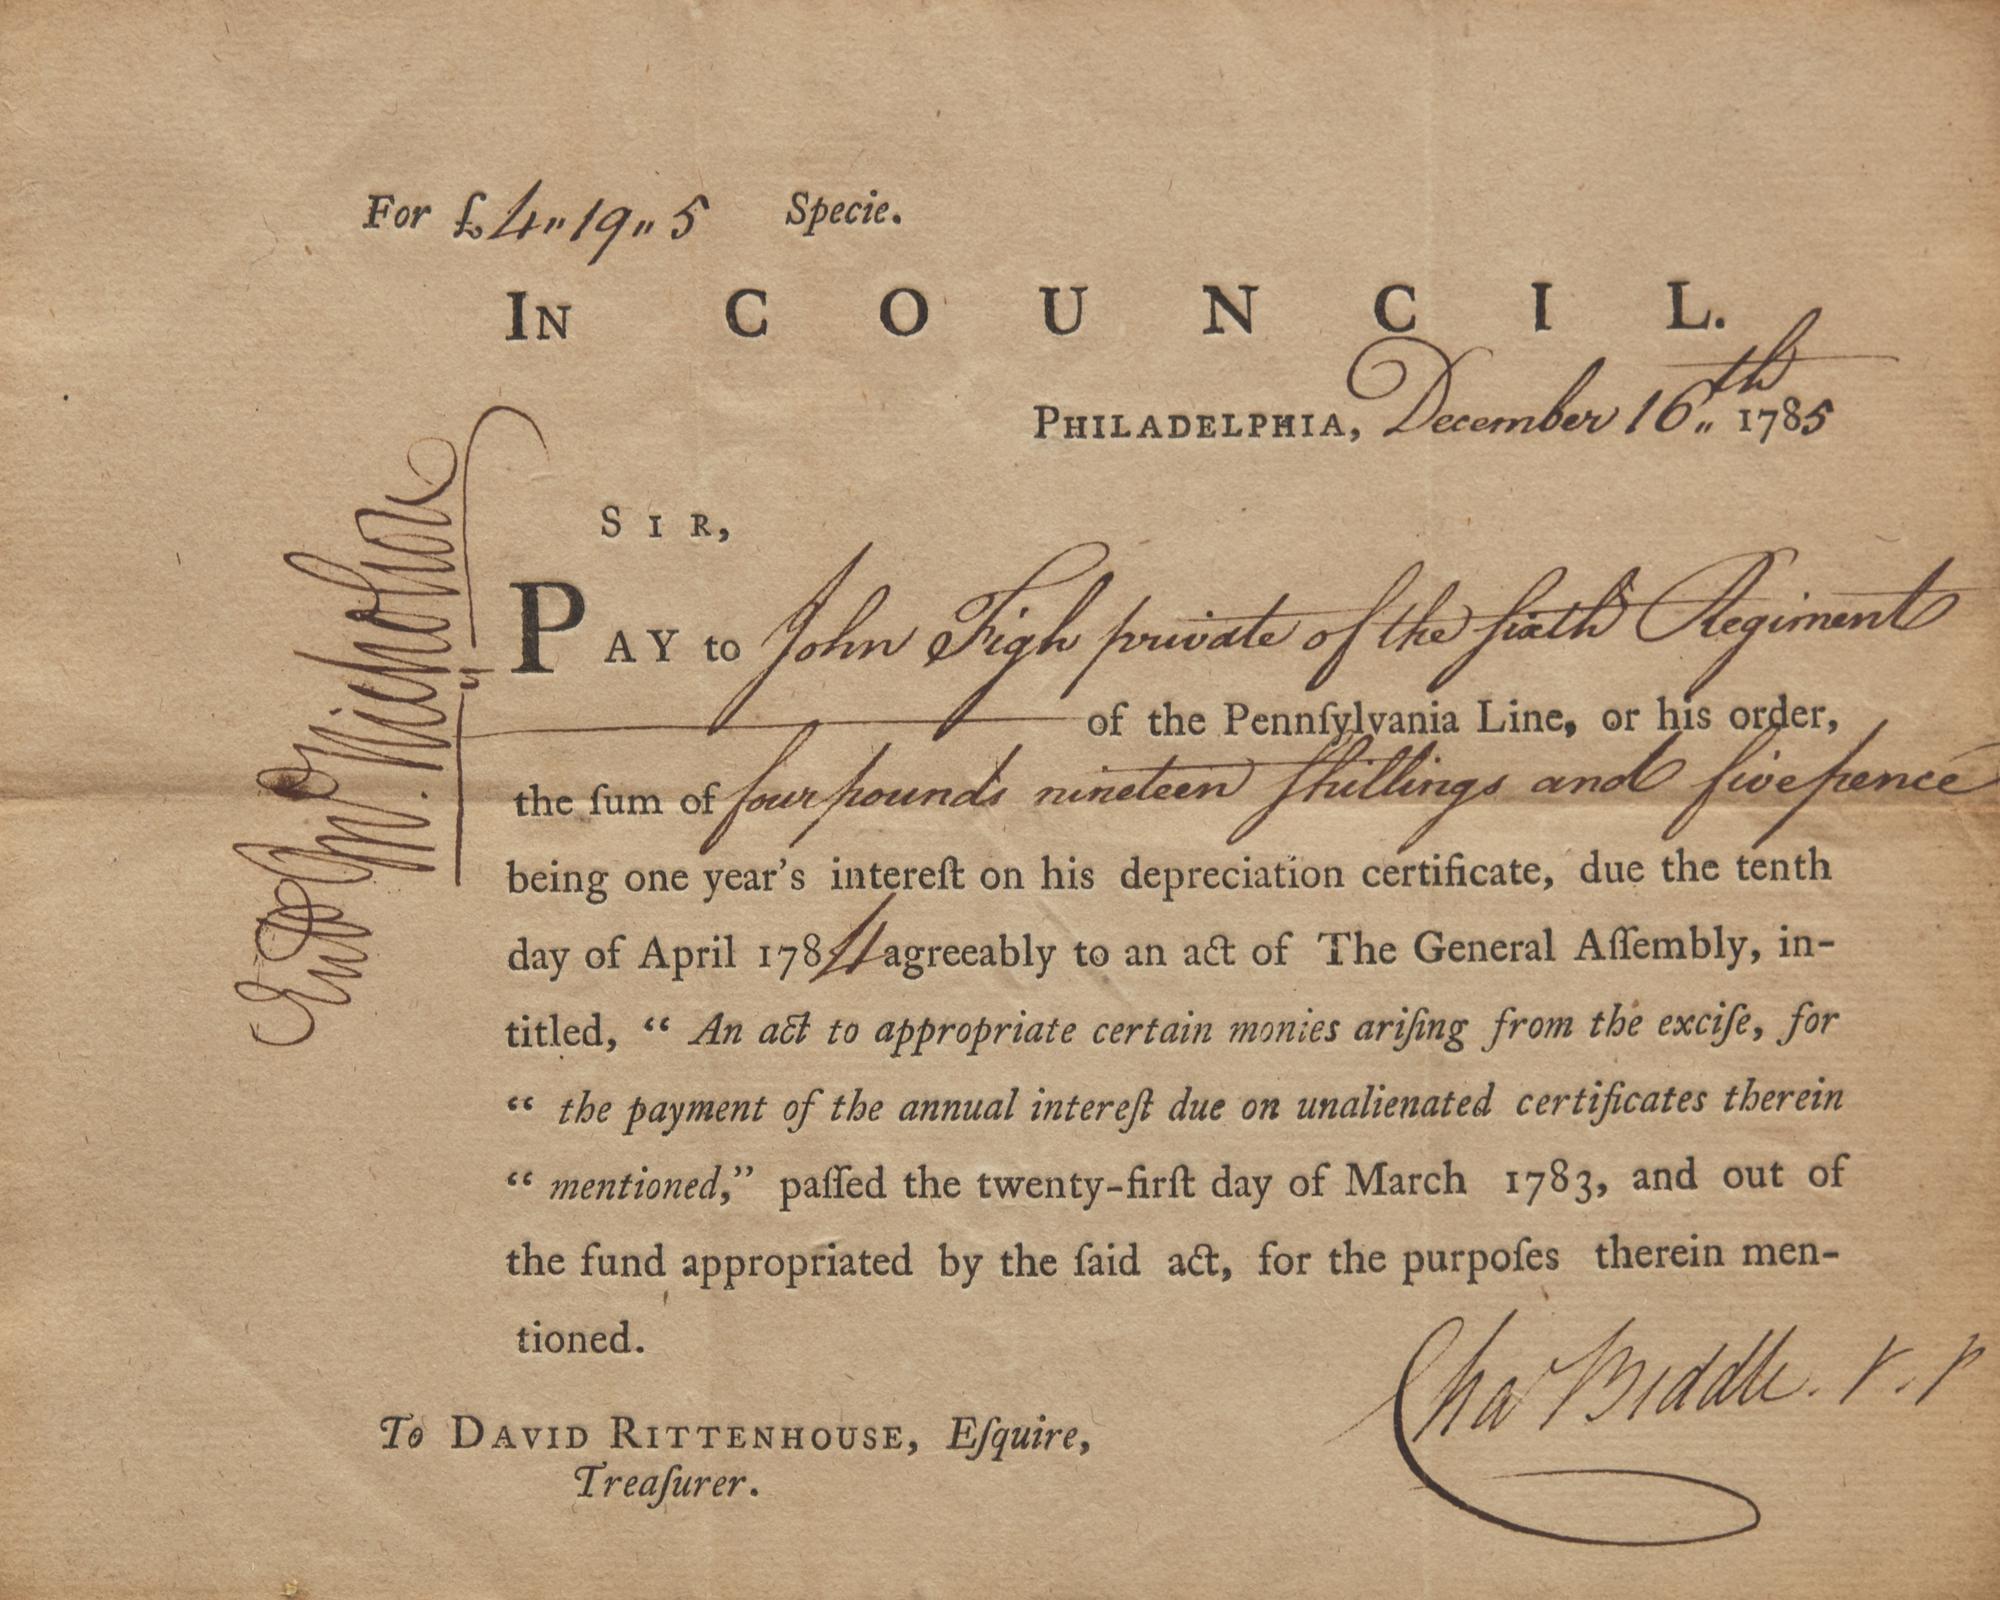 For £4„19„5 Specie.
IN COUNCIL.
PHILADELPHIA, December 16„th 1785
SIR,
PAY to John Figh private of the sixth Regiment
of the Pennſylvania Line, or his order,
the ſum of four pounds nineteen ſhillings and five pence
being one year's intereſt on his depreciation certificate, due the tenth
day of April 1784 agreeably to an act of The General Aſſembly, in-
titled, “ An act to appropriate certain monies ariſing from the exciſe, for
“ the payment of the annual intereſt due on unalienated certificates therein
“ mentioned,” paſſed the twenty-firſt day of March 1783, and out of
the fund appropriated by the ſaid act, for the purpoſes therein men-
tioned.
Chaˢ Biddle. V. P
To DAVID RITTENHOUSE, Eſquire,
Treaſurer.
Nicholson